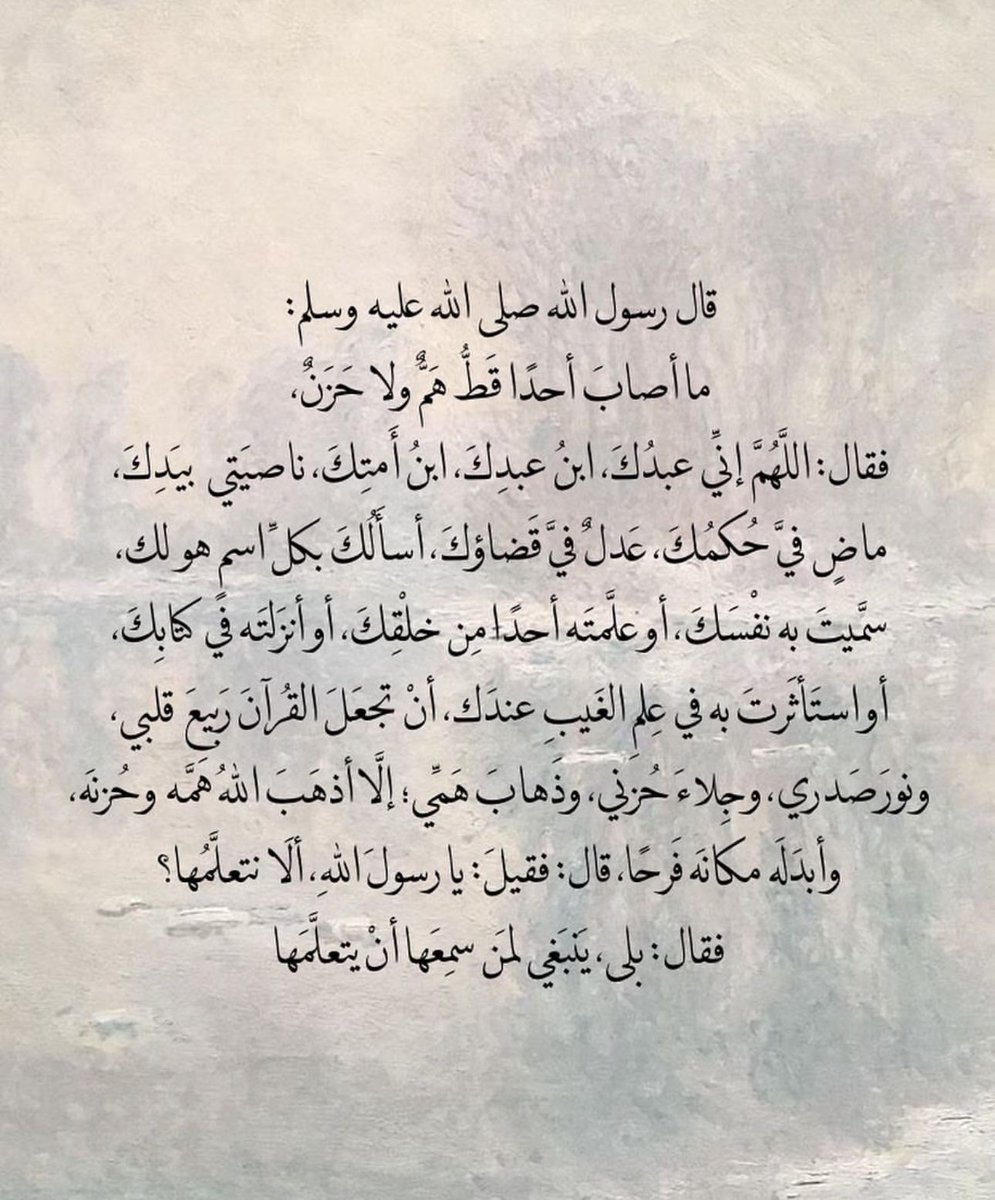 قال رسول الله صلى الله عليه وسلم:
ما أصابَ أحدًا قَطُّ هَمٌّ ولا حَزَنٌ،
فقال: اللَّهُمَّ إنِّي عبدُكَ، ابنُ عبدِكَ، ابنُ أَمتِكَ، ناصيَتي بيَدِكَ،
ماضٍ فيَّ حُكمُكَ، عَدلٌ فيَّ قَضاؤكَ، أسألُكَ بكلِّ اسمٍ هو لك،
سمَّيتَ به نفْسَكَ، أو علَّمتَه أحدًا مِن خلْقِكَ، أو أنزَلتَه في كتابِكَ،
أو استَأثَرتَ به في عِلمِ الغَيبِ عندَك، أنْ تجعَلَ القُرآنَ رَبيعَ قلبي،
ونورَ صَدري، وجِلاءَ حُزني، وذَهابَ هَمِّي؛ إلَّا أذهَبَ اللهُ هَمَّه وحُزنَه،
وأبدَلَه مكانَه فَرحًا، قال: فقيلَ: يا رسولَ اللهِ، ألَا نتعلَّمُها؟
فقال: بلى، يَنبَغي لمَن سمِعَها أنْ يتعلَّمَها